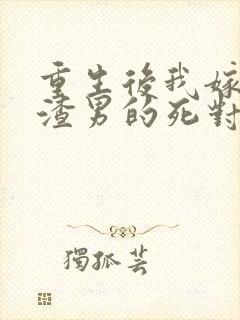 重生後我嫁
渣男的死對
獨孤芸